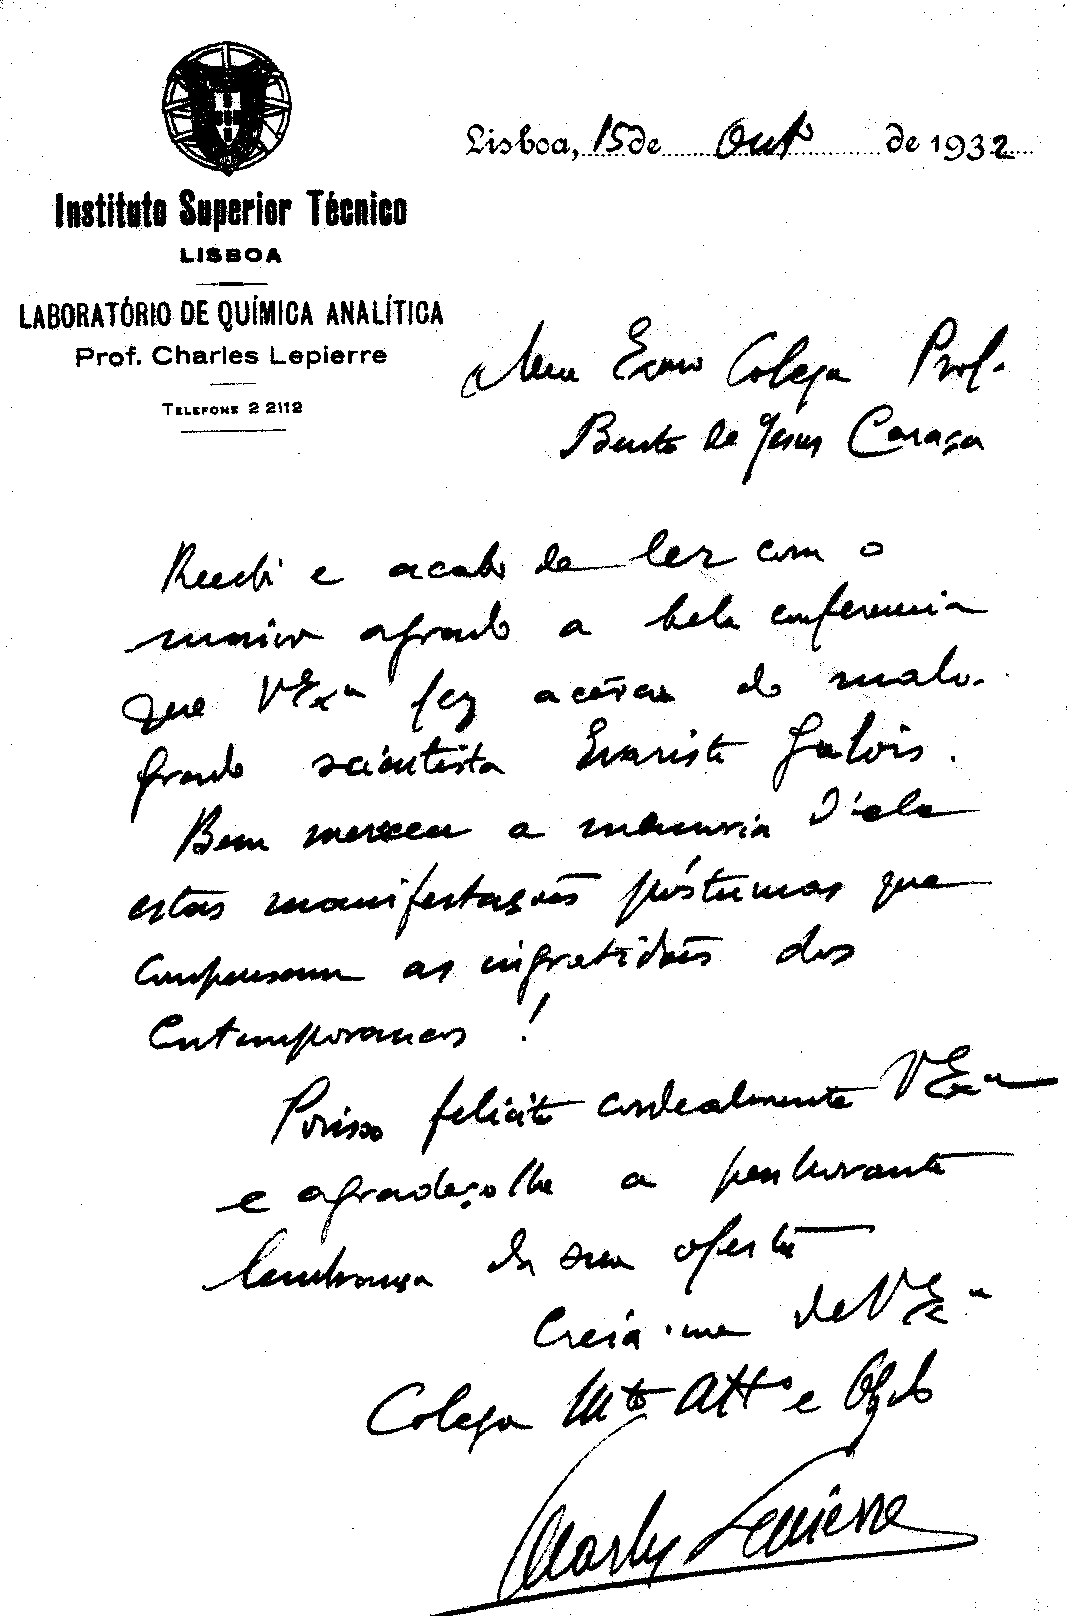 Lisboa, 15 de Outº de 1932
Instituto Superior Técnico
LISBOA
LABORATÓRIO DE QUÍMICA ANALÍTICA
Prof. Charles Lepierre
TELEFONE 2 2112
Meu Exmo Colega Prof.
Bento de Jesus Caraça
Recebi e acabo de ler com o
maior agrado a bela conferencia
que V Exª fez acêrca do malo-
grado scientista Evariste Galois.
Bem merecem a memoria d'ele
estas manifestações póstumas que
compensam as ingratidões dos
contemporaneos !
Porisso felicito cordealmente V Exª
e agradeço lhe a penhorante
lembrança da sua oferta
Creia-me de V Exª
Colega Mto Attº e Obgdo
Charles Lepierre